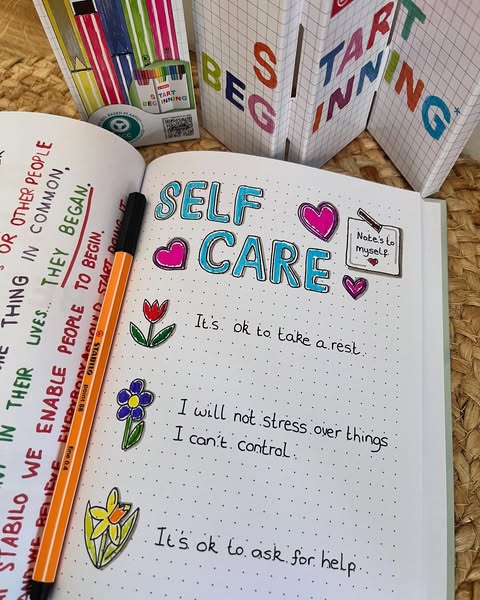 START
BEGINNING
S
BEG
TAR
INN
T
NING*
OR OTHER PEOPLE
THING IN COMMON,
IN THEIR LIVES, THEY BEGAN.
STABILO WE ENABLE PEOPLE TO BEGIN.
STABILO
point 88
fine 0.4
SELF
CARE
Note's to
myself
It's ok to take a rest.
I will not stress over things
I can't control.
It's ok to ask for help